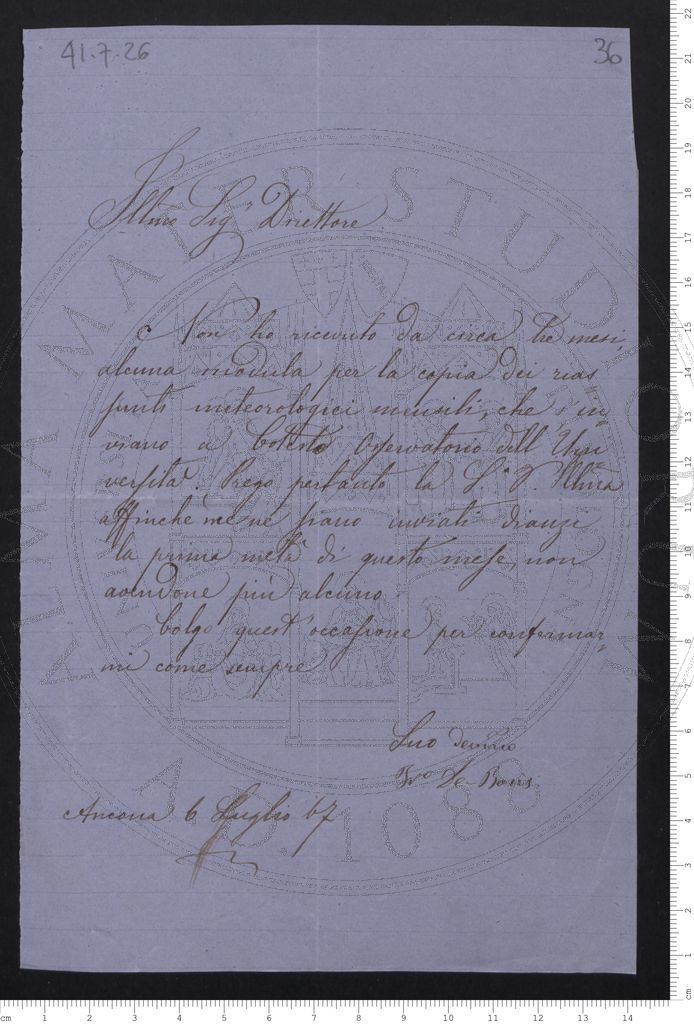 41.7.26
36
Illmo Sig.r Direttore
Non ho ricevuto da circa tre mesi
alcuna modula per la copia dei rias
sunti meteorologici mensili, che s'in
viano a cotesto Osservatorio dell'Uni
versità. Prego pertanto la S.a V. Illma
affinchè me ne siano inviati dianzi
la prima metà di questo mese, non
avendone più alcuno.
Colgo quest'occasione per confermar
mi come sempre
Suo devmo
De Bosis
Ancona 6 Luglio 67
ALMA MATER STUDIORUM
A.D. 1088